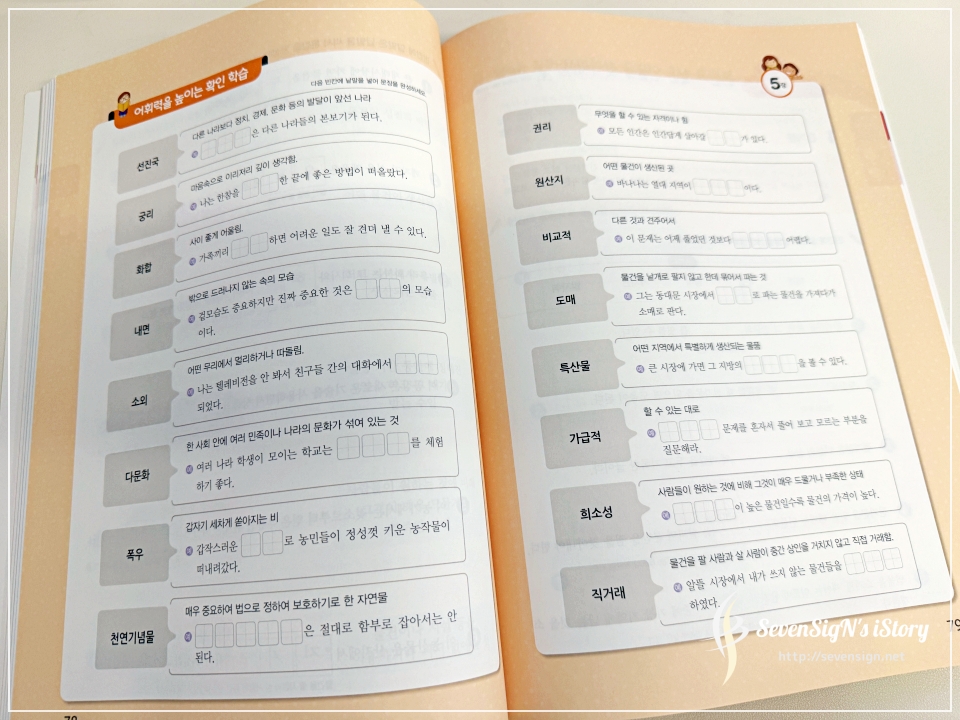 어휘력을 높이는 확인 학습
다음 빈칸에 낱말을 넣어 문장을 완성하세요.
선진국
다른 나라보다 정치, 경제, 문화 등의 발달이 앞선 나라
예 은 다른 나라들의 본보기가 된다.
궁리
마음속으로 이리저리 깊이 생각함.
예 나는 한참을 한 끝에 좋은 방법이 떠올랐다.
화합
사이 좋게 어울림.
예 가족끼리 하면 어려운 일도 잘 견뎌 낼 수 있다.
내면
밖으로 드러나지 않는 속의 모습
예 겉모습도 중요하지만 진짜 중요한 것은 의 모습
이다.
소외
어떤 무리에서 멀리하거나 따돌림.
예 나는 텔레비전을 안 봐서 친구들 간의 대화에서
되었다.
다문화
한 사회 안에 여러 민족이나 나라의 문화가 섞여 있는 것
예 여러 나라 학생이 모이는 학교는 를 체험
하기 좋다.
폭우
갑자기 세차게 쏟아지는 비
예 갑작스러운 로 농민들이 정성껏 키운 농작물이
떠내려갔다.
천연기념물
매우 중요하여 법으로 정하여 보호하기로 한 자연물
예 은 절대로 함부로 잡아서는 안
된다.
78
5주
권리
무엇을 할 수 있는 자격이나 힘
예 모든 인간은 인간답게 살아갈 가 있다.
원산지
어떤 물건이 생산된 곳
예 바나나는 열대 지역이 이다.
비교적
다른 것과 견주어서
예 이 문제는 어제 풀었던 것보다 어렵다.
도매
물건을 낱개로 팔지 않고 한데 묶어서 파는 것
예 그는 동대문 시장에서 로 파는 물건을 가져다가
소매로 판다.
특산물
어떤 지역에서 특별하게 생산되는 물품
예 큰 시장에 가면 그 지방의 을 볼 수 있다.
가급적
할 수 있는 대로
예 문제를 혼자서 풀어 보고 모르는 부분을
질문해라.
희소성
사람들이 원하는 것에 비해 그것이 매우 드물거나 부족한 상태
예 이 높은 물건일수록 물건의 가격이 높다.
직거래
물건을 팔 사람과 살 사람이 중간 상인을 거치지 않고 직접 거래함.
예 알뜰 시장에서 내가 쓰지 않는 물건들을
하였다.
79
SevenSigN's iStory
http://sevensign.net